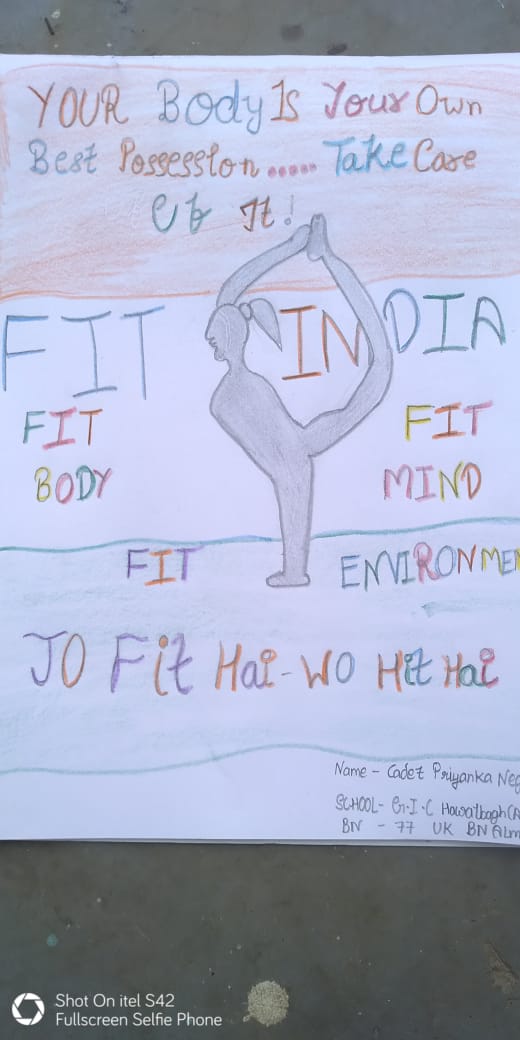 YOUR Body Is Your Own
Best Possession ..... Take Care
Of It!
FIT INDIA
FIT FIT
BODY MIND
FIT ENVIRONMEN
JO Fit Hai - WO Hit Hai
Name - Cadet Priyanka Neg
SCHOOL - G.I.C Hawalbagh (A
BN - 77 UK BN Alm
Shot On itel S42
Fullscreen Selfie Phone